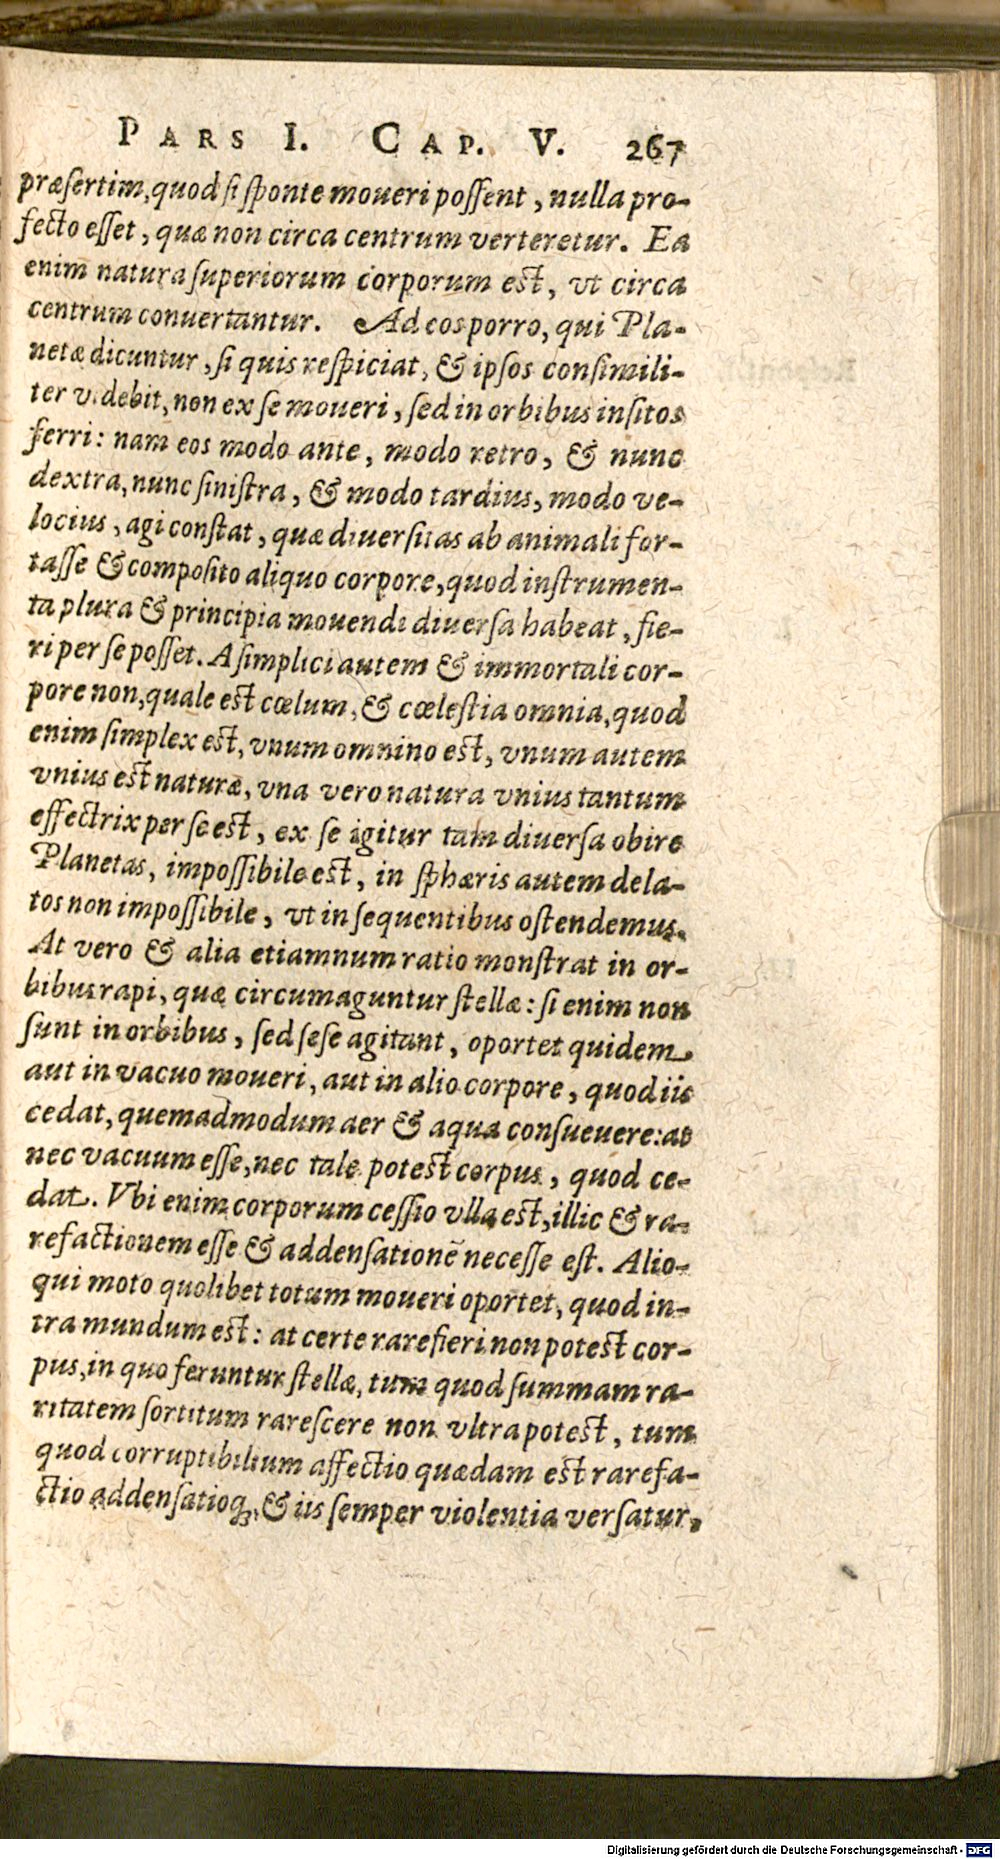 PARS I. CAP. V. 267
præsertim, quod si sponte moueri possent, nulla pro-
fecto esset, quæ non circa centrum verteretur. Ea
enim natura superiorum corporum est, vt circa
centrum conuertantur. Ad eos porro, qui Pla-
netæ dicuntur, si quis respiciat, & ipsos consimili-
ter videbit, non ex se moueri, sed in orbibus insitos
ferri: nam eos modo ante, modo retro, & nunc
dextra, nunc sinistra, & modo tardius, modo ve-
locius, agi constat, quæ diuersitas ab animali for-
tasse & composito aliquo corpore, quod instrumen-
ta plura & principia mouendi diuersa habeat, fie-
ri per se posset. A simplici autem & immortali cor-
pore non, quale est cœlum, & cœlestia omnia, quod
enim simplex est, vnum omnino est, vnum autem
vnius est naturæ, vna vero natura vnius tantum
effectrix per se est, ex se igitur tam diuersa obire
Planetas, impossibile est, in sphæris autem dela-
tos non impossibile, vt in sequentibus ostendemus.
At vero & alia etiamnum ratio monstrat in or-
bibus rapi, quæ circumaguntur stellæ: si enim non
sunt in orbibus, sed sese agitant, oportet quidem
aut in vacuo moueri, aut in alio corpore, quod iis
cedat, quemadmodum aer & aqua consueuere: at
nec vacuum esse, nec tale potest corpus, quod ce-
dat. Vbi enim corporum cessio vlla est, illic & ra-
refactionem esse & addensationẽ necesse est. Alio-
qui moto quolibet totum moueri oportet, quod in-
tra mundum est: at certe rarefieri non potest cor-
pus, in quo feruntur stellæ, tum quod summam ra-
ritatem sortitum rarescere non vltra potest, tum
quod corruptibilium affectio quædam est rarefa-
ctio addensatioq;, & iis semper violentia versatur,
Digitalisierung gefördert durch die Deutsche Forschungsgemeinschaft - DFG